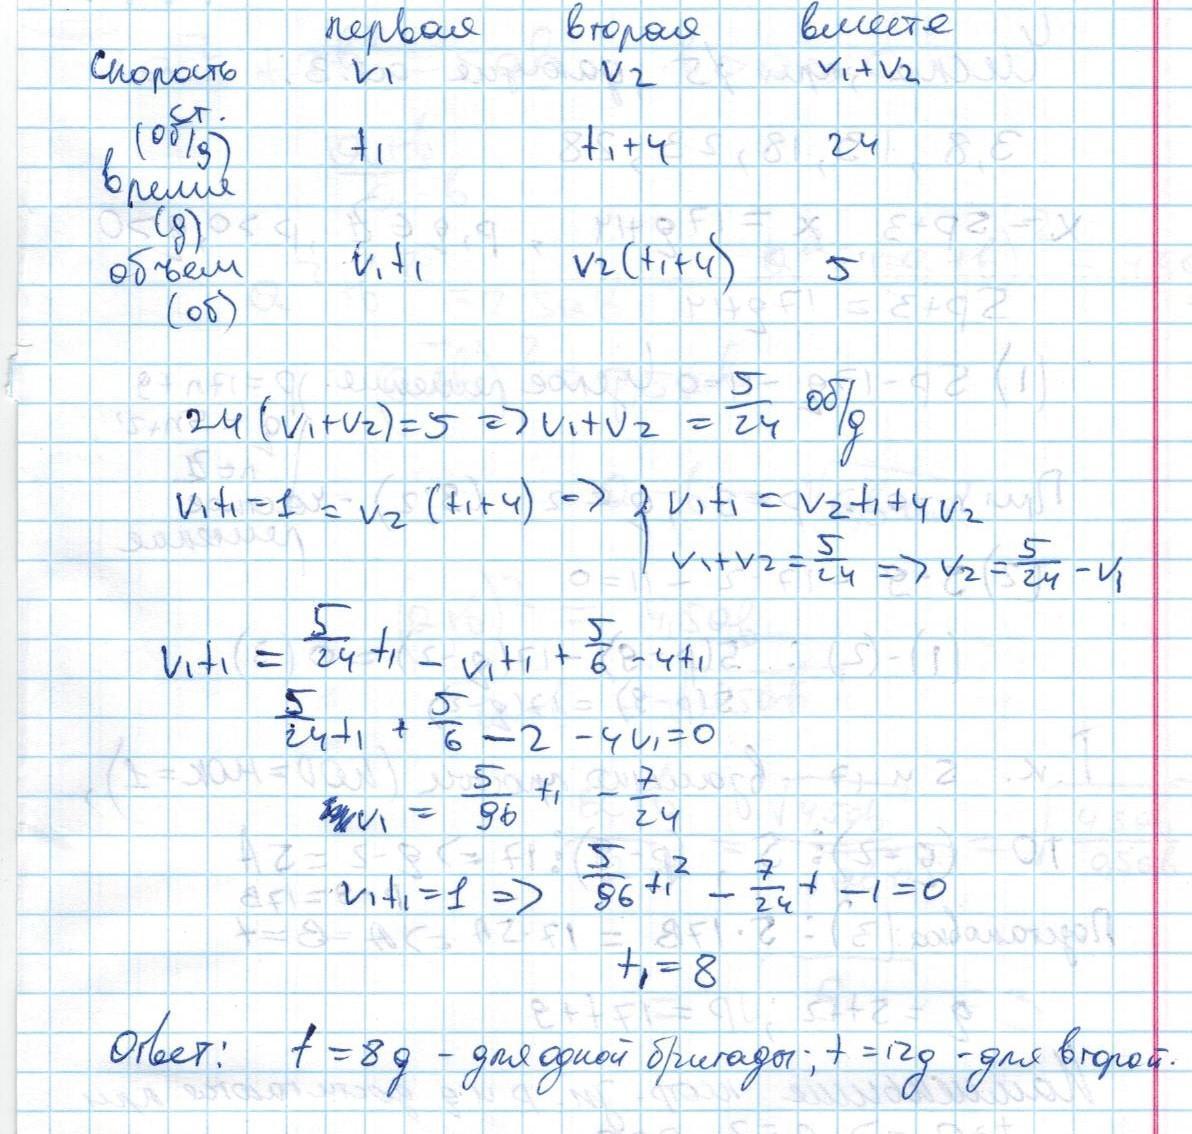 первая вторая вместе
Скорость v1 v2 v1+v2
ст.
(об/д) t1 t1+4 24
время
(д)
объем v1t1 v2(t1+4) 5
(об)
24(v1+v2)=5 => v1+v2 = 5/24 об/д
v1t1=1=v2(t1+4) => { v1t1 = v2t1+4v2
v1+v2 = 5/24 => v2 = 5/24 - v1
v1t1 = 5/24 t1 - v1t1 + 5/6 - 4t1
5/24 t1 + 5/6 - 2 - 4v1=0
v1 = 5/96 t1 - 7/24
v1t1=1 => 5/96 t1² - 7/24 t - 1=0
t1=8
Ответ: t=8д - для одной бригады; t=12д - для второй.